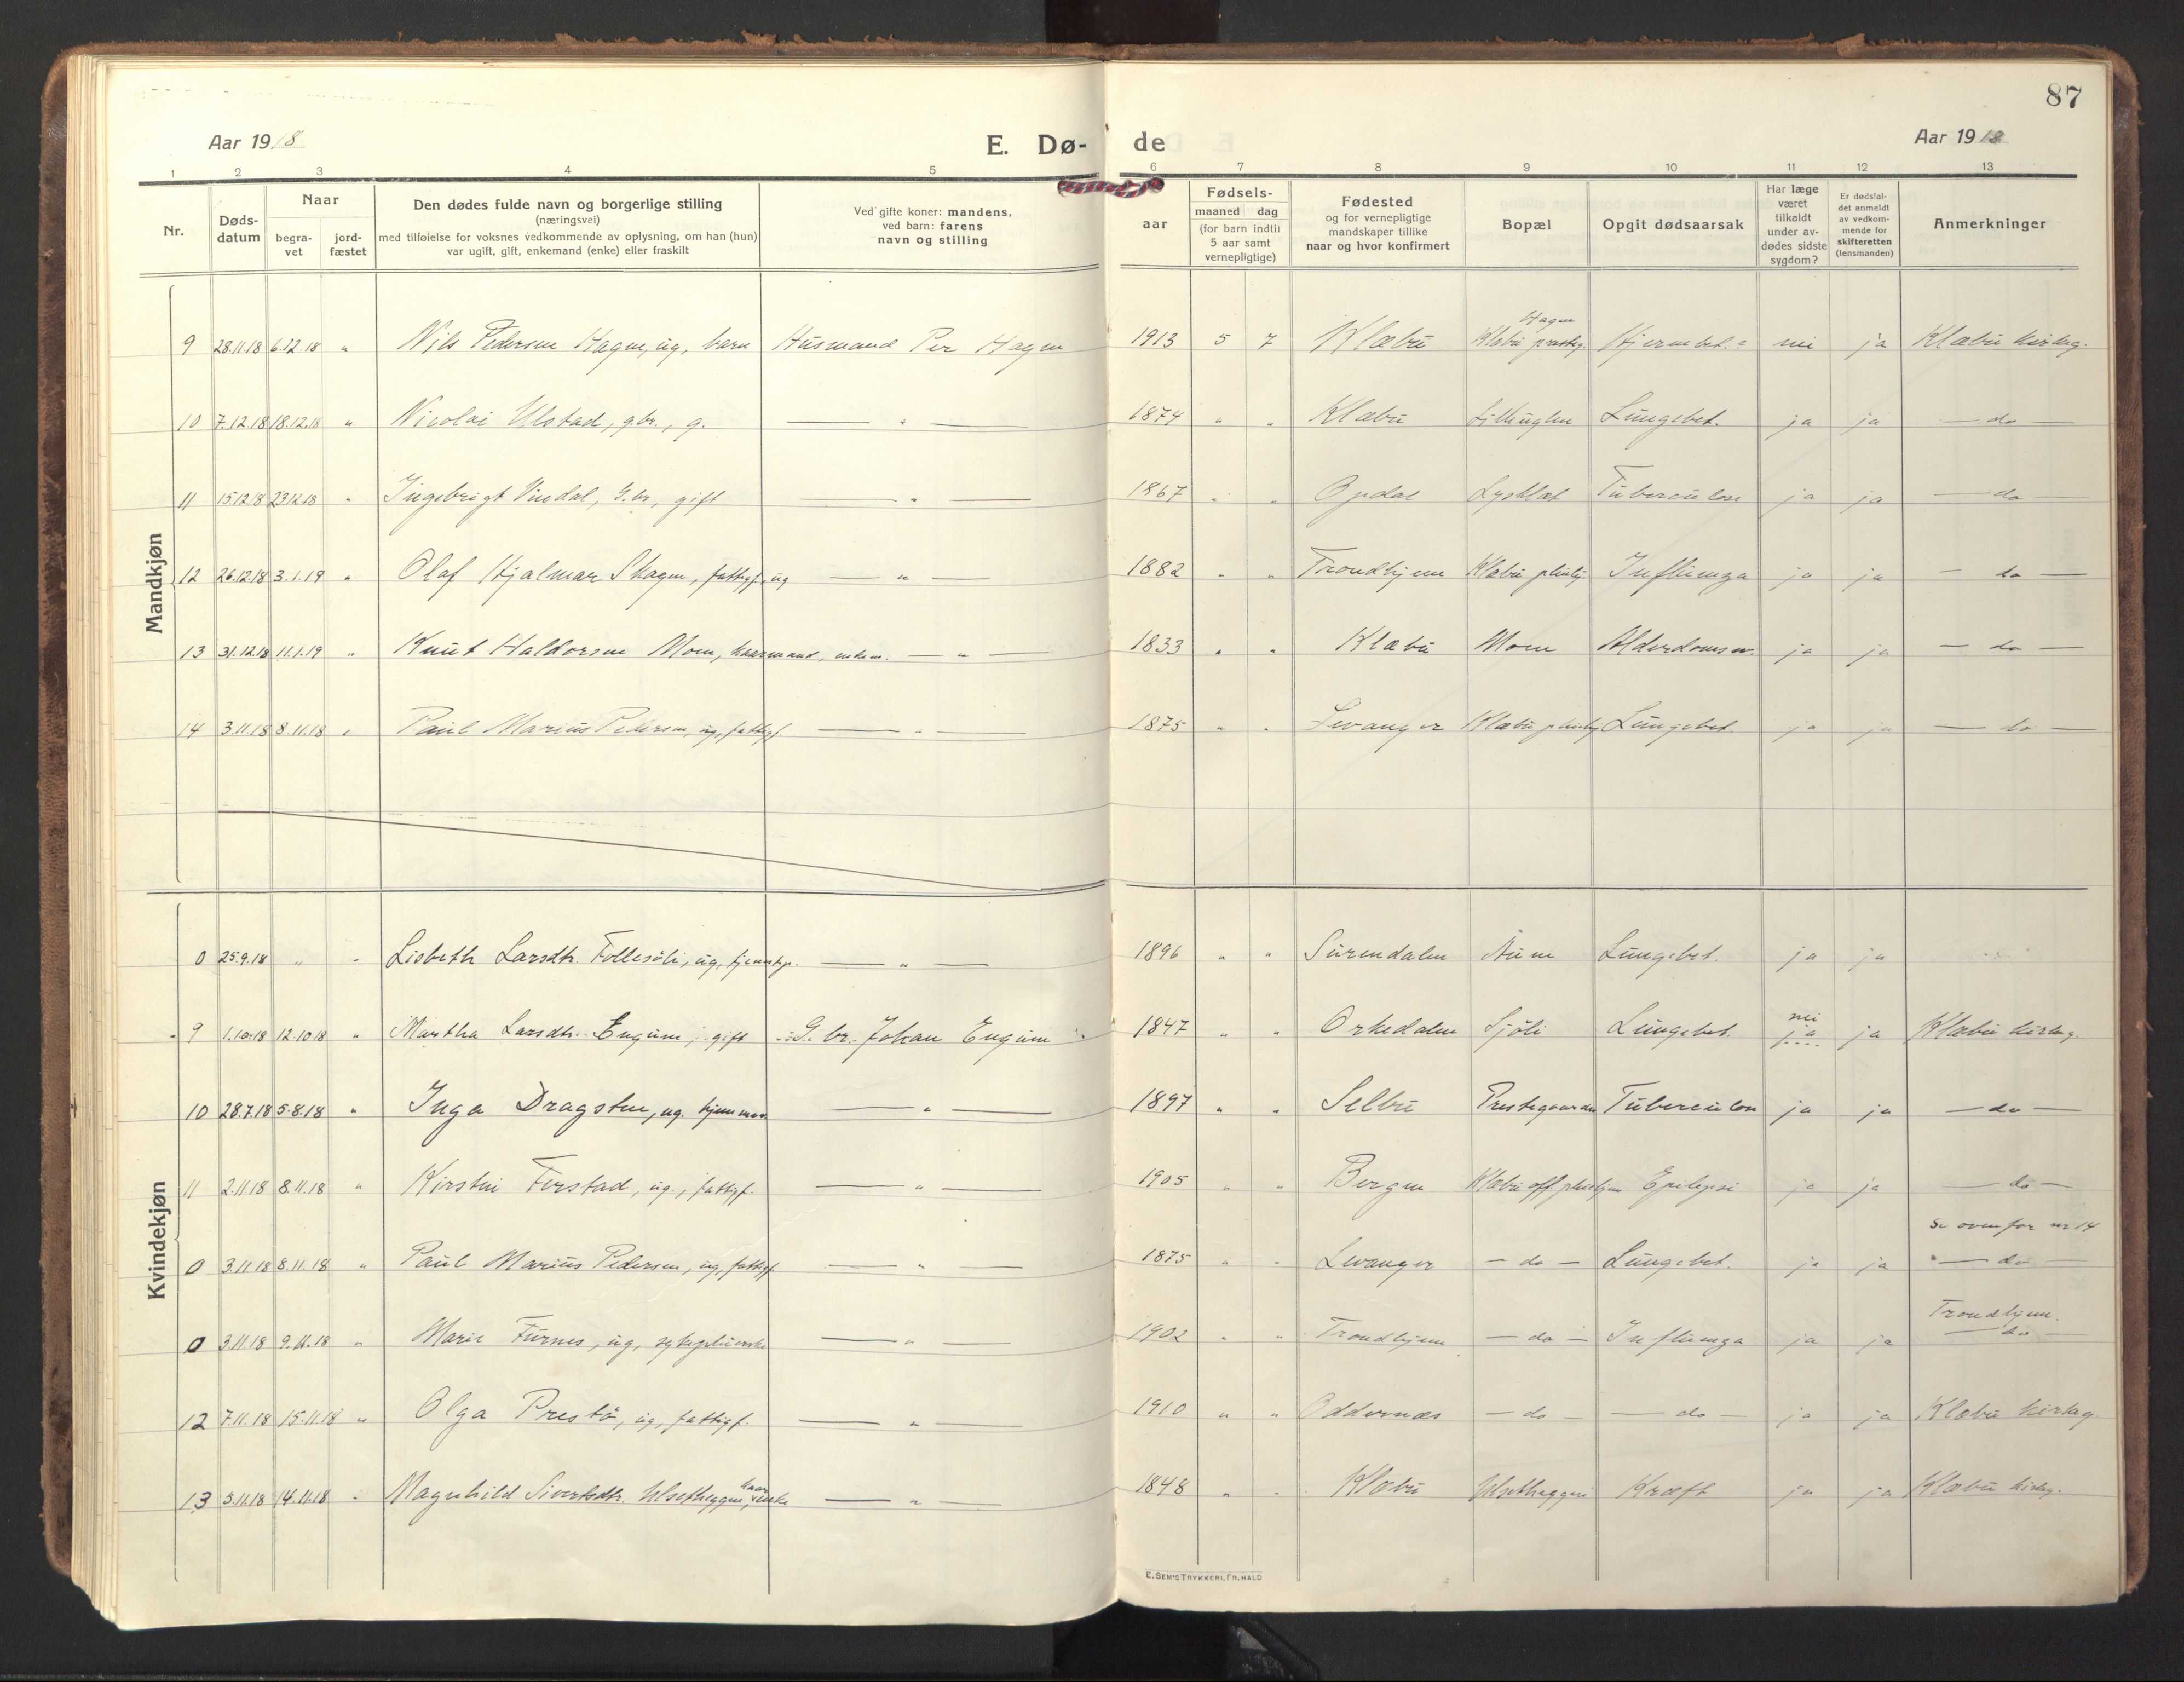 87
Aar 1918 E. Dø- de Aar 1918
1 2 3 4 5 6 7 8 9 10 11 12 13
Nr.
Døds-
datum
Naar
begra-
vet
jord-
fæstet
Den dødes fulde navn og borgerlige stilling
(næringsvei)
med tilføielse for voksnes vedkommende av oplysning, om han (hun)
var ugift, gift, enkemand (enke) eller fraskilt
Ved gifte koner: mandens,
ved barn: farens
navn og stilling
aar
Fødsels-
maaned dag
(for barn indtil
5 aar samt
vernepligtige)
Fødested
og for vernepligtige
mandskaper tillike
naar og hvor konfirmert
Bopæl
Opgit dødsaarsak
Har læge
været
tilkaldt
under av-
dødes sidste
sygdom?
Er dødsfal-
det anmeldt
av vedkom-
mende for
skifteretten
(lensmanden)
Anmerkninger
Mandkjøn
Hagen
9 28.11.18 6.12.18 " Nils Pedersen Hagen, ug, barn Husmand Per Hagen 1913 5 7 Klæbu Klæbu prestg. Hjernebet. nei ja Klæbu kirkeg.
10 7.12.18 18.12.18 " Nicolai Ulstad, gbr., g. — " — 1874 " " Klæbu Lilleuglen Lungebet. ja ja — do —
11 15.12.18 23.12.18 " Ingebrigt Vindal, G.br, gift — " — 1867 " " Opdal Lysklæt Tuberculose ja ja — do —
12 26.12.18 3.1.19 " Olaf Hjalmar Skagen, fattigf., ug — " — 1882 " " Trondhjem Klæbu pleiehj. Influenza ja ja — do —
13 31.12.18 11.1.19 " Knut Haldorsen Moen, kaarmand, enkem. — " — 1833 " " Klæbu Moen Alderdomssv. ja ja — do —
14 3.11.18 8.11.18 " Paul Marius Pedersen, ug, fattigf. — " — 1875 " " Levanger Klæbu pleiehj Lungebet. ja ja — do —
Kvindekjøn
0 25.9.18 " " Lisbeth Larsdtr. Follesøli, ug, tjenestep. — " — 1896 " " Surendalen Aune Lungebet. ja ja
nei
9 1.10.18 12.10.18 " Martha Larsdtr. Engum, gift G.br. Johan Engum 1847 " " Orkedalen Sjøli Lungebet. ja ja Klæbu kirkeg.
10 28.7.18 5.8.18 " Inga Dragsten, ug. — " — 1897 " " Selbu Prestegaarden Tuberculose ja ja — do —
11 2.11.18 8.11.18 " Kirsten Ferstad, ug., fattigf. — " — 1905 " " Bergen Klæbu off. pleiehjem Epilepsi ja ja — do —
Se ovenfor nr 14
0 3.11.18 8.11.18 " Paul Marius Pedersen, ug, fattigf. — " — 1875 " " Levanger — do — Lungebet. ja ja — do
Trondhjem.
0 3.11.18 9.11.18 " Marie Furnes, ug, sykepleierske — " — 1902 " " Trondhjem — do — Influenza ja ja — do —
12 7.11.18 15.11.18 " Olga Prestø, ug, fattigf. — " — 1910 " " Oddernæs — do — — do — ja ja Klæbu kirkeg
kaar
13 3.11.18 14.11.18 " Magnhild Sivertsdtr. Ulsetheggen, enke — " — 1848 " " Klæbu Ulsetheggen Kræft ja ja Klæbu kirkeg.
E. SEM'S TRYKKERI, FR.HALD